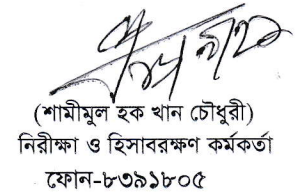 (শামীমুল হক খান চৌধুরী)
নিরীক্ষা ও হিসাবরক্ষণ কর্মকর্তা
ফোন-৮৩৯১৮০৫